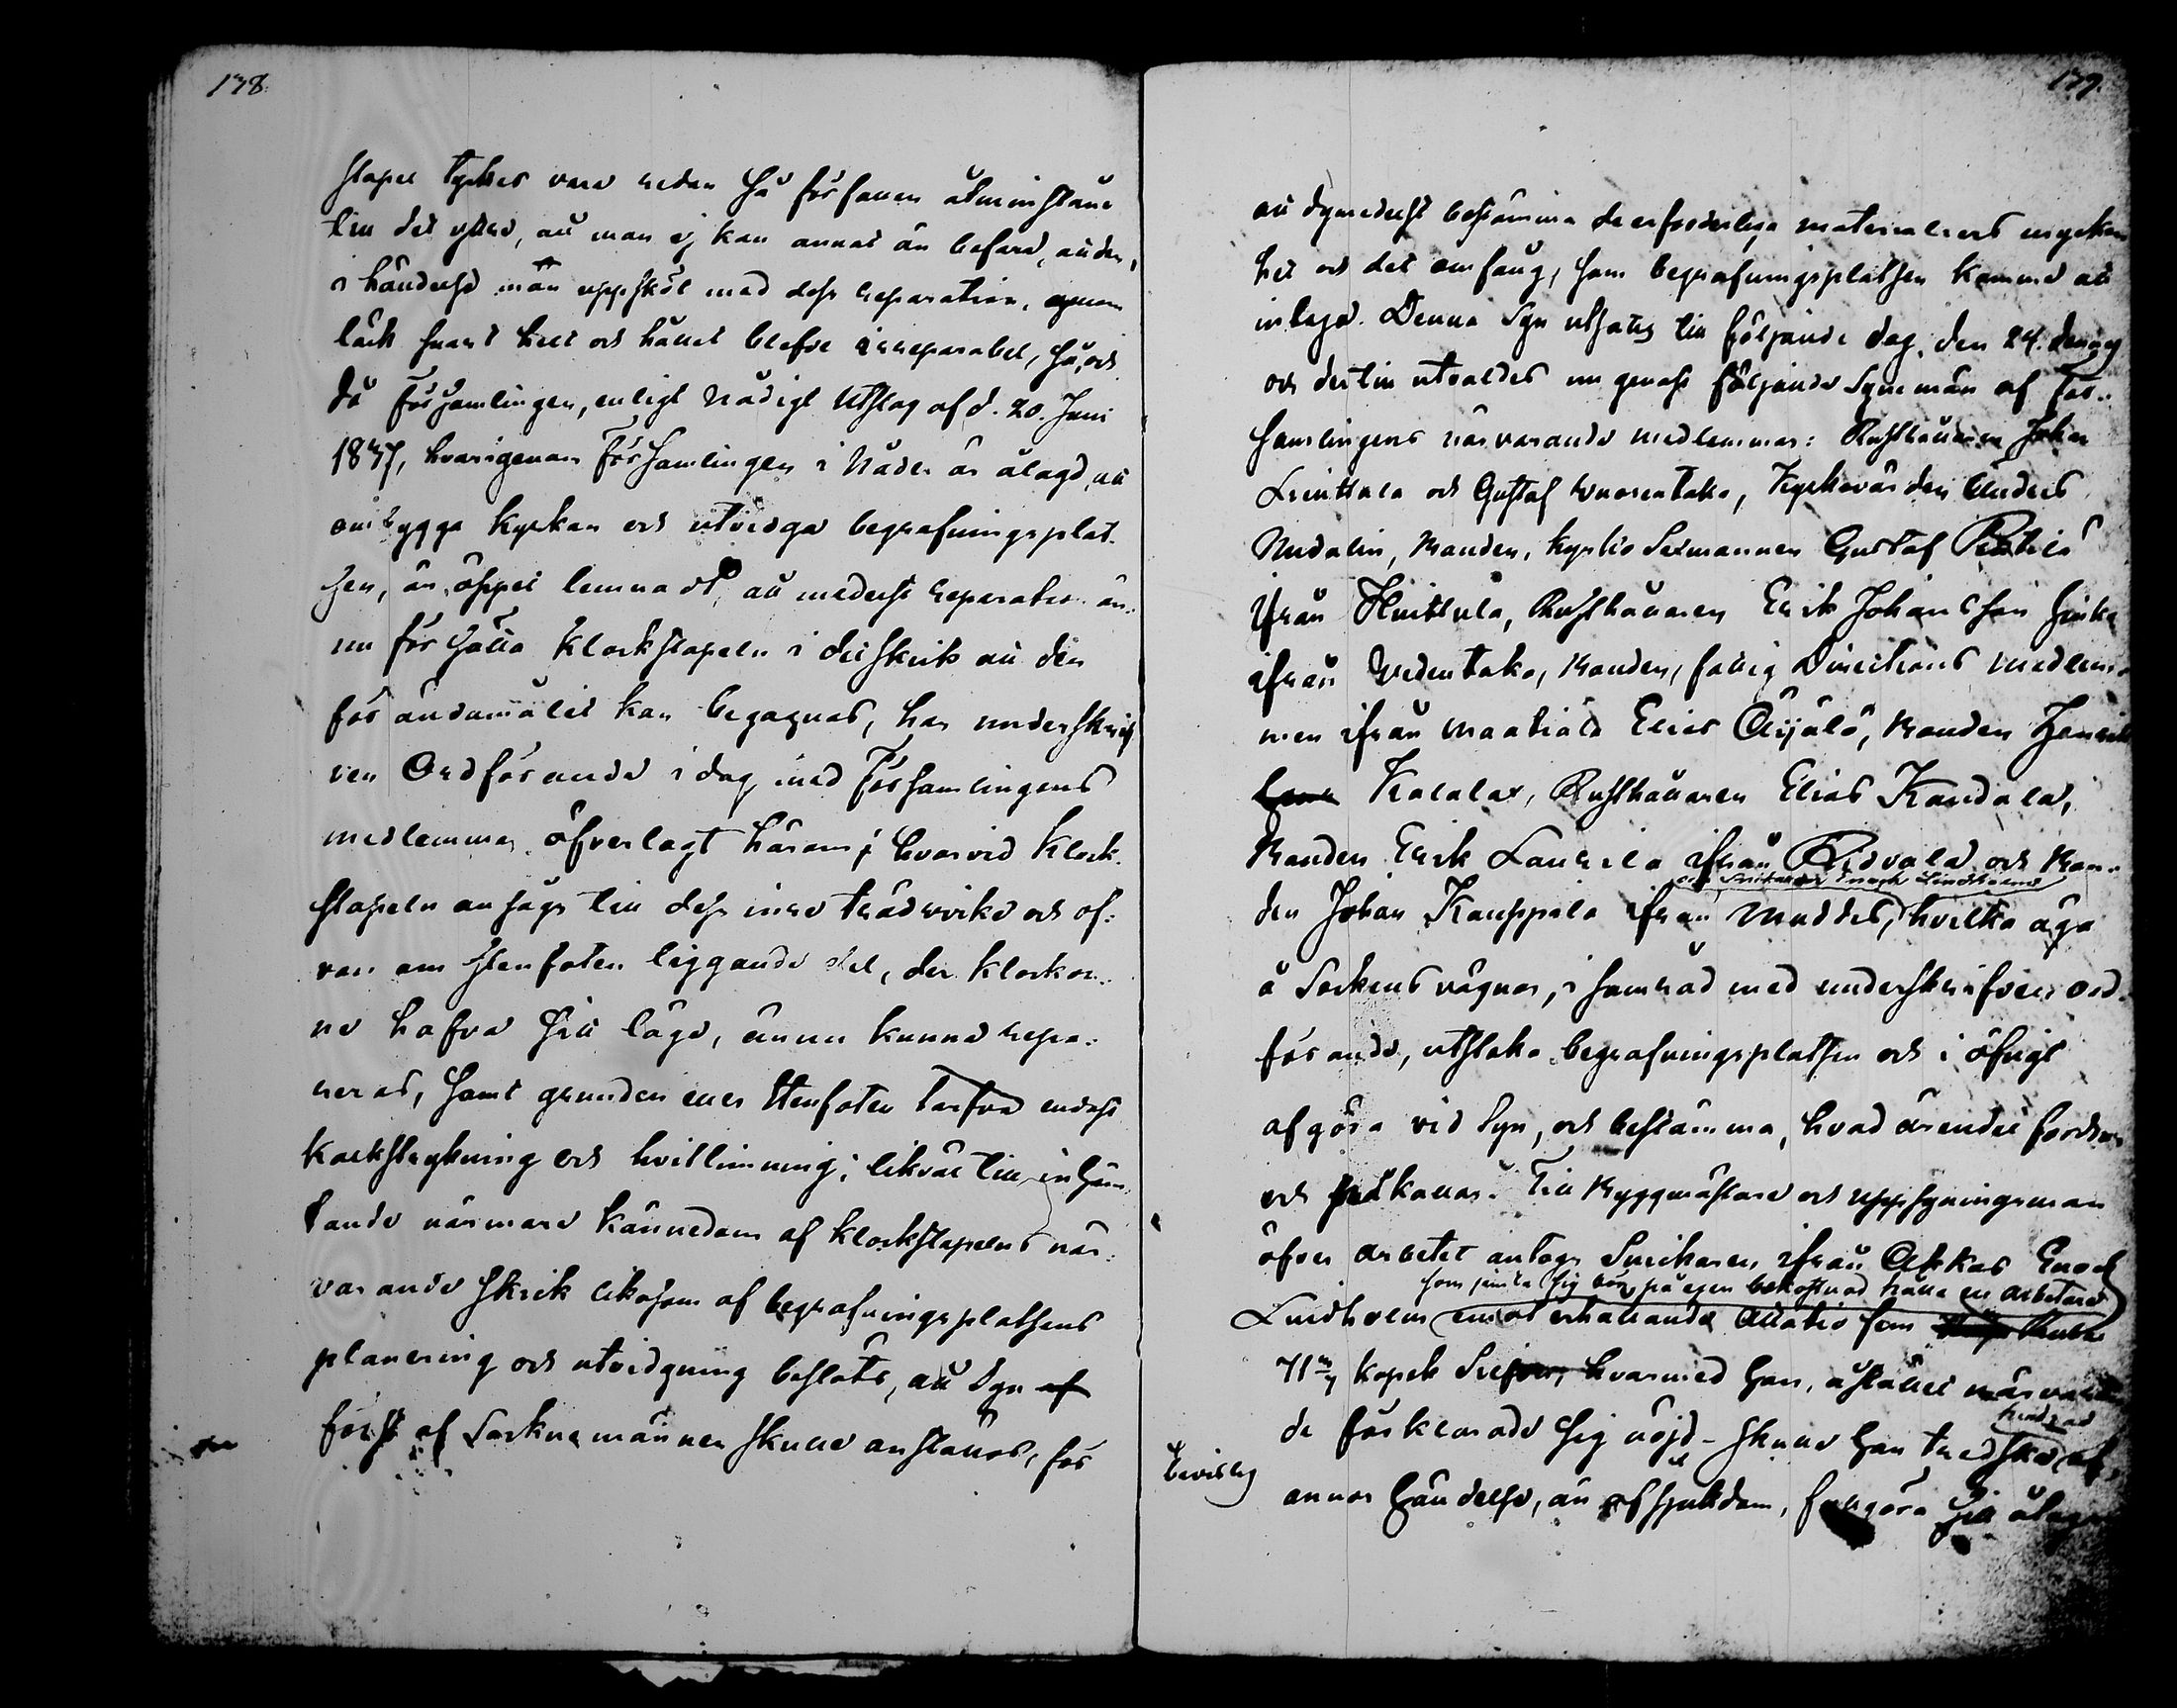 138.
stapel tyckes vara redan så förfallen åtminstone
till det yttre, att man ej kan annat än befara, att den,
i händelse man uppsköt med dess reparation,
snart helt och hållet blefve irreparabel, så, och
då Församlingen, enligt Nådigt Utslag af d. 20. Juni
1837, hvarigenom Församlingen i Nåder är ålagd, att
ombygga Kyrkan och utvidga begrafningsplat-
sen, är öppet lemnadt, att medelst reparation än-
nu försätta Klockstapeln i det skick att den
för ändamålet kan begagnas, har underskrif-
ven Ordförande i dag med Församlingens
medlemmar öfverlagt härom; hvarvid Klock-
stapeln ansågs till dess inre trädvirke och of-
van om stenfoten liggande del, der klockor-
ne hafva sitt läge, ännu kunna repa-
reras, samt grunden eller stenfoten tarfva endast
kalkstrykning och hvitlimning; likväl till inhäm-
tande närmare kännedom af klockstapelns när-
varande skick likasom af begrafningsplatsens
planering och utvidgning beslöts, att Syn af
först af Socknemännen skulle anställas, för
139.
att dymedelst bestämma de erforderliga materialiers mycken-
het och det omfång, som begrafningsplatsen komme att
intaga. Denna Syn utsattes till följande dag, den 24. dennes
och dertill utvaldes nu genast följande Synemän af För-
samlingens närvarande medlemmar: Rusthållaren Johan
Leinttula och Gustaf Wuorentaka, Kyrkovärden Anders
Nudalin, Bonden, Kyrkio Sexmannen Gustaf
ifrån Huittula, Rusthållaren Erik Johansson
ifrån Vedentaka, Bonden, fattig Directions medlem-
men ifrån Maatiala Elias Äijälä, Bonden Henrik
Kalala, Rusthållaren Elias Kandala,
Bonden Erik Laurila ifrån Ridvala och Bon-
och Snickaren Enoch Lindholm
den Johan Kauppila ifrån Muddes, hvilka äga
å Sockens vägnar, i samråd med underskrifven ord-
förande, utstaka begrafningsplatsen och i öfrigt
afgöra vid Syn, och bestämma, hvad ärendet fordrar
och påkallar. Till Byggmästare och uppsyningsman
öfver arbetet antogs Snickaren ifrån Akkas Enoch
som jemte sig bör på egen bekostnad hålla en arbetare
Lindholm emot erhållande Ålatio fem Rubel
71 3/7 kopek Silfver, hvarmed han, åstället närvaran-
de förklarade sig nöjd - Skulle han tredska, af
hindrad
annor händelse, än af sjukdom, fullgöra sitt åliggan-